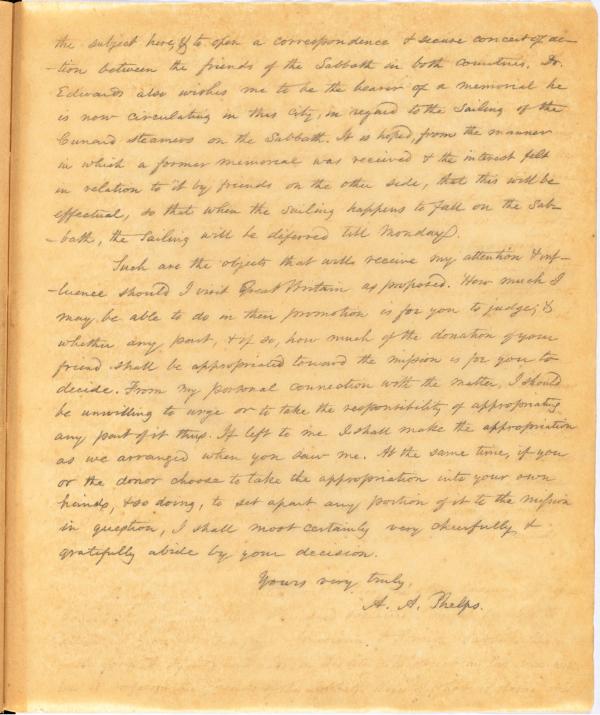 the subject here, & to open a correspondence & secure concert of ac-
-tion between the friends of the Sabbath in both countries. Dr.
Edwards also wishes me to be the bearer of a memorial he
is now circulating in this City, in regard to the Sailing of the
Cunard steamers on the Sabbath. It is hoped, from the manner
in which a former memorial was received & the interest felt
in relation to it by friends on the other side, that this will be
effectual, so that when the sailing happens to fall on the Sab-
-bath, the Sailing will be diferred till Monday.
Such are the objects that will receive my attention & inf-
-luence should I visit Great Britain as proposed. How much I
may be able to do in their promotion is for you to judge; &
whether any part, & if so, how much of the donation of your
friend shall be appropriated toward the mission is for you to
decide. From my personal connection with the matter, I should
be unwilling to urge or to take the responsibility of appropriating
any part of it thus. If left to me I shall make the appropriation
as we arranged when you saw me. At the same time, if you
or the donor choose to take the appropriation into your own
hands, & so doing, to set apart any portion of it to the mission
in question, I shall most certainly very cheerfully &
gratefully abide by your decision.
Yours very truly,
A. A. Phelps.